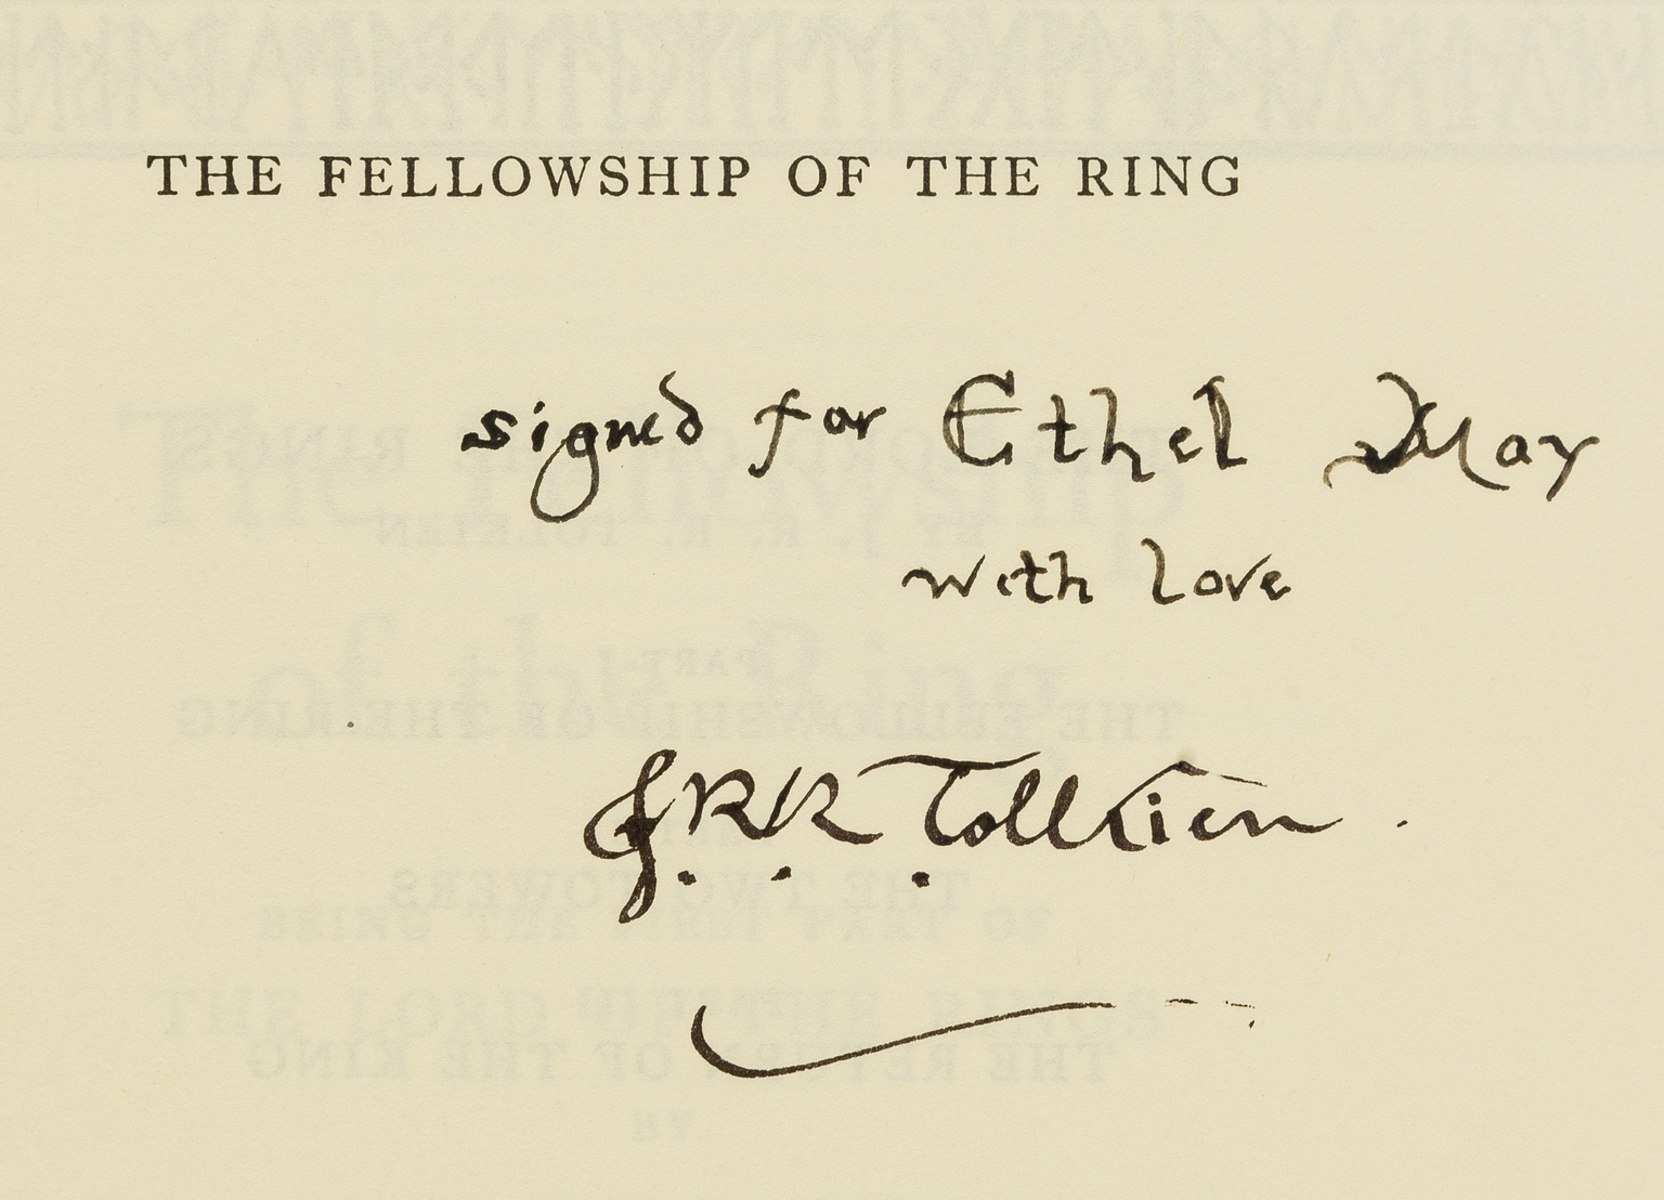 THE FELLOWSHIP OF THE RING
signed for Ethel May
with love
J.R.R. Tolkien.